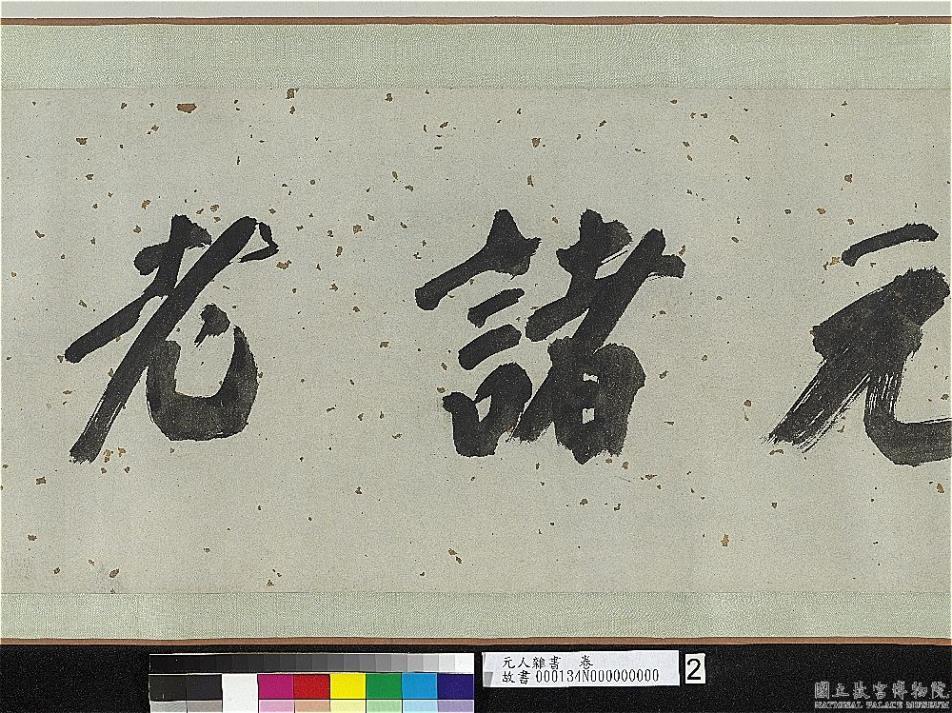 元諸老
元人雜書 卷
故書 000134N000000000
2
國立故宮博物院
NATIONAL PALACE MUSEUM